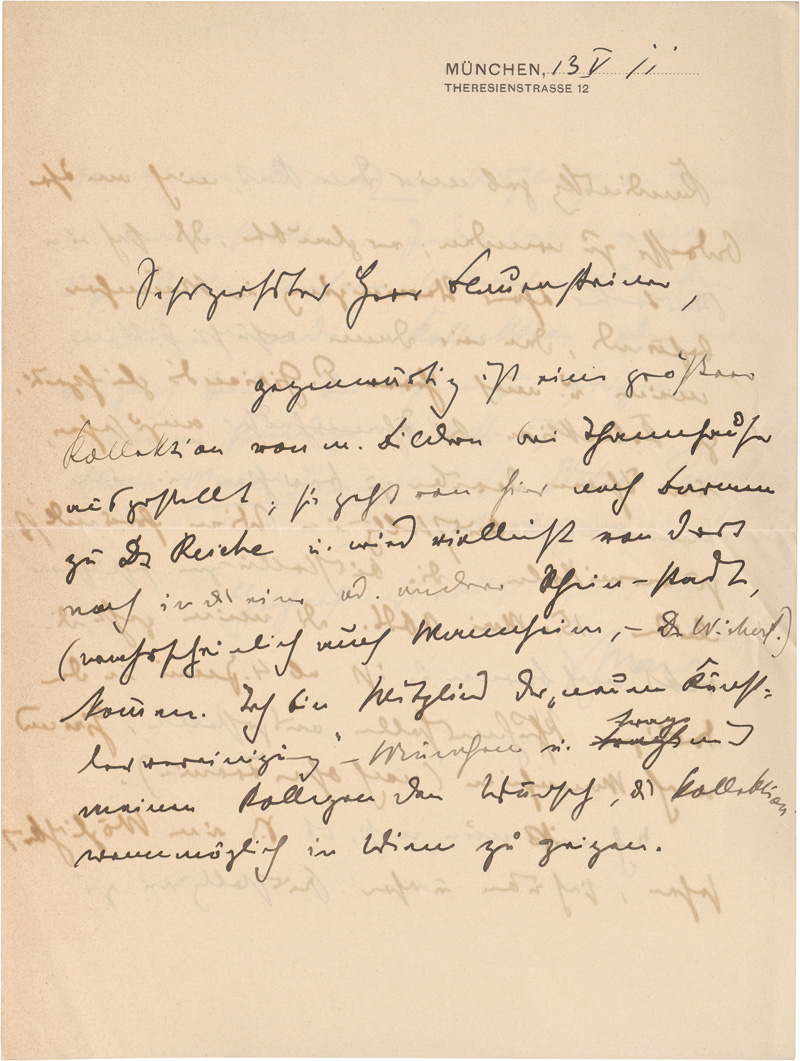 MÜNCHEN, 13 V 11
THERESIENSTRASSE 12
Sehrgeehrter Herr Blauensteiner,
gegenwärtig ist eine größere
Kollektion von m. Bildern bei Thannhauser
ausgestellt; sie geht von hier nach Barmen
zu Dr Reiche u. wird vielleicht von dort
noch in die eine od. andere Rhein-stadt,
(wahrscheinlich auch Mannheim, – Dr Wichert.)
kommen. Ich bin Mitglied der „neuen Künst-
lervereinigung" – München u. trage
meinen Kollegen den Wunsch, die Kollektion
wennmöglich in Wien zu zeigen.